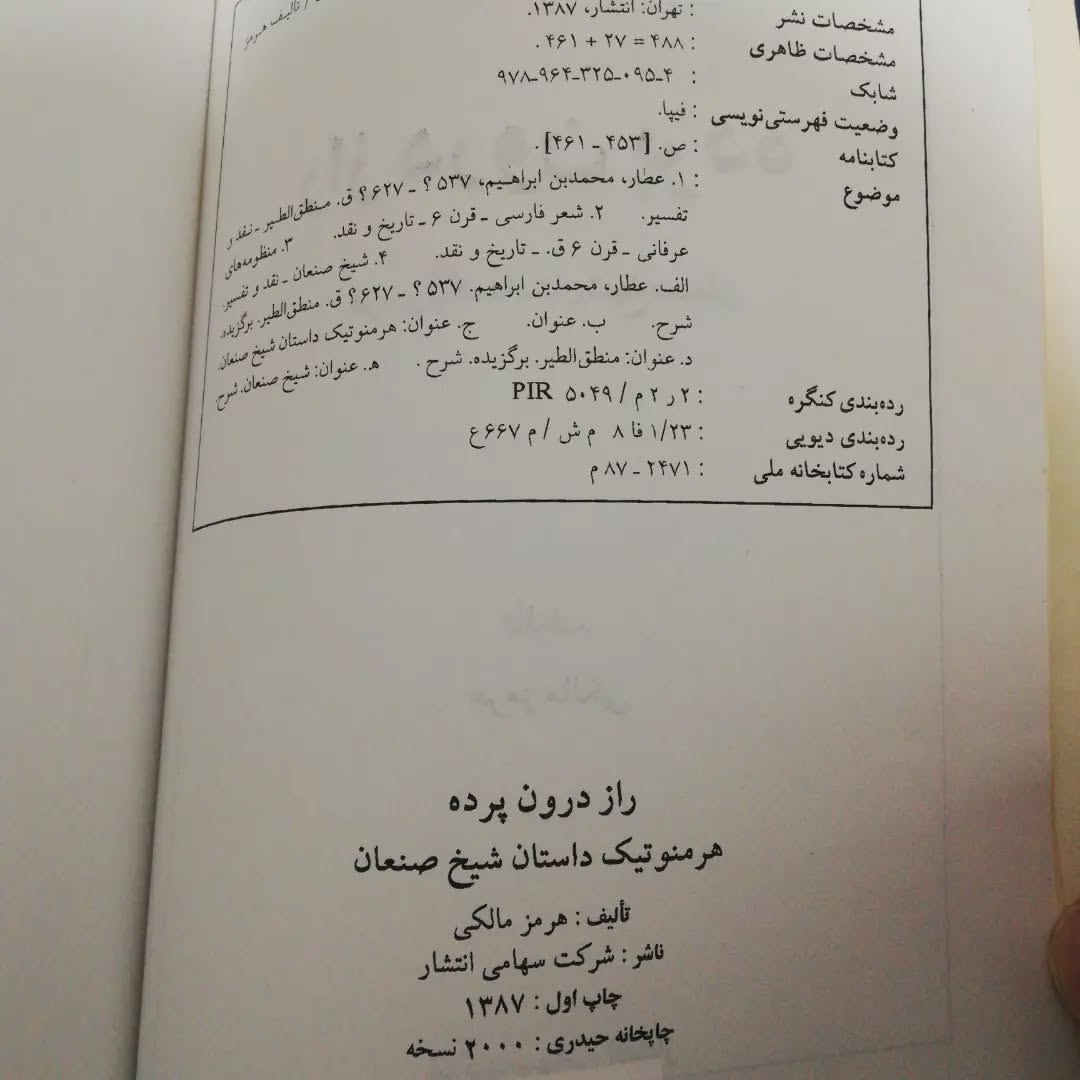 / تألیف هرمز
مشخصات نشر : تهران: انتشار، ۱۳۸۷.
مشخصات ظاهری : ۴۸۸ = ۲۷ + ۴۶۱ .
شابک : ۹۷۸ـ۹۶۴ـ۳۲۵ـ۰۹۵ـ۴
وضعیت فهرستی‌نویسی : فیپا.
کتابنامه : ص. [۴۵۳ ـ ۴۶۱] .
موضوع : ۱. عطار، محمدبن ابراهیم، ۵۳۷ ؟ ـ ۶۲۷ ؟ ق. منطق‌الطیر ـ نقد و
تفسیر. ۲. شعر فارسی ـ قرن ۶ ـ تاریخ و نقد. ۳. منظومه‌های
عرفانی ـ قرن ۶ ق. ـ تاریخ و نقد. ۴. شیخ صنعان ـ نقد و تفسیر.
الف. عطار، محمدبن ابراهیم. ۵۳۷ ؟ ـ ۶۲۷ ؟ ق. منطق‌الطیر. برگزیده.
شرح. ب. عنوان. ج. عنوان: هرمنوتیک داستان شیخ صنعان.
د. عنوان: منطق‌الطیر. برگزیده. شرح . ه‍. عنوان: شیخ صنعان. شرح.
رده‌بندی کنگره : ۲ ر ۲ م / ۵۰۴۹ PIR
رده‌بندی دیویی : ۱/۲۳ فا ۸ م ش / م ۶۶۷ ع
شماره کتابخانه ملی : ۲۴۷۱ ـ ۸۷ م
راز درون پرده
هرمنوتیک داستان شیخ صنعان
تألیف : هرمز مالکی
ناشر : شرکت سهامی انتشار
چاپ اول : ۱۳۸۷
چاپخانه حیدری : ۲۰۰۰ نسخه